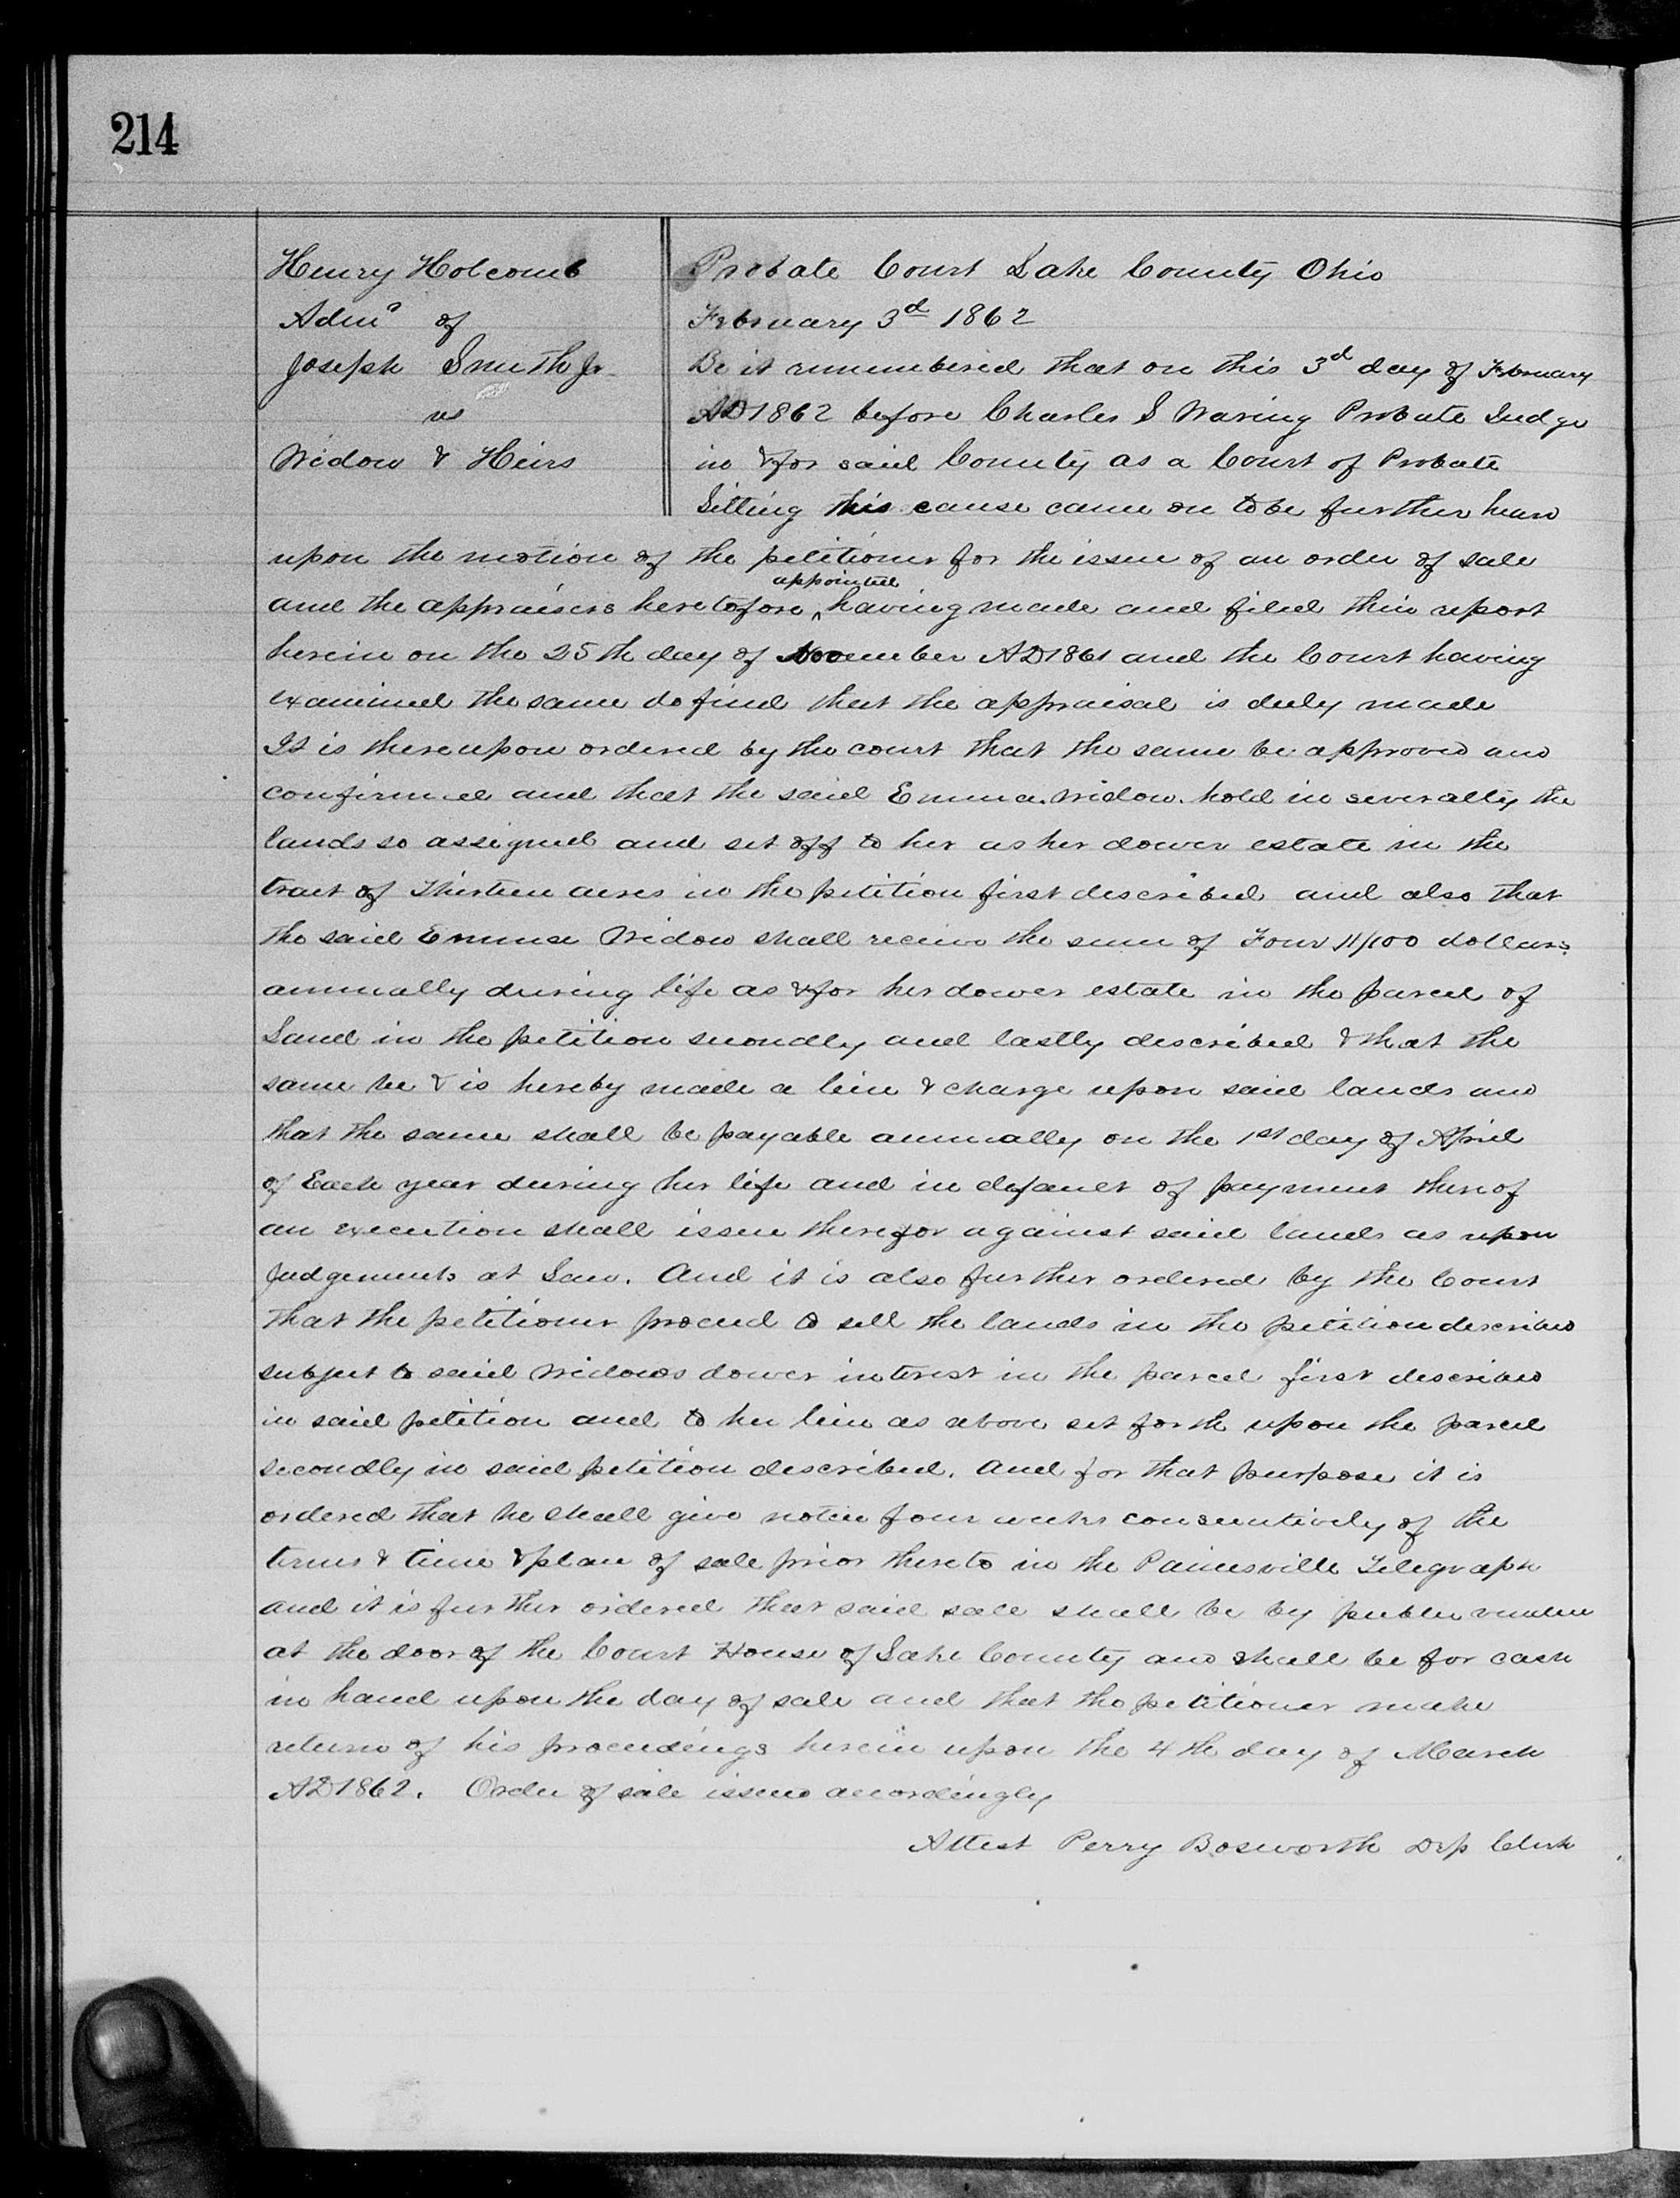 214
Henry Holcomb
Admr of
Joseph Smith Jr.
vs
Widow & Heirs
Probate Court Lake County Ohio
February 3d 1862
Be it remembered that on this 3d day of February
AD 1862 before Charles S Waring Probate Judge
in & for said County as a Court of Probate
Sitting this cause came on to be further heard
upon the motion of the petitioner for the issue of an order of sale
and the appraisers heretofore appointed having made and filed their report
herein on the 25th day of November AD 1861 and the Court having
examined the same do find that the appraisal is duly made
It is thereupon ordered by the court that the same be approved and
confirmed and that the said Emma. Widow. hold in severalty the
lands so assigned and set off to her as her dower estate in the
tract of Thirteen acres in the petition first described and also that
the said Emma Widow shall receive the sum of Four 11/100 dollars.
annually during life as & for her dower estate in the parcel of
Land in the petition secondly and lastly described & that the
same be & is hereby made a lien & charge upon said lands and
that the same shall be payable annually on the 1st day of April
of Each year during her life and in default of payment thereof
an execution shall issue therefor against said lands as upon
Judgements at Law. And it is also further ordered by the Court
that the petitioner proceed to sell the lands in the petition described
subject to said Widows dower interest in the parcel first described
in said petition and to her lien as above set forth upon the parcel
secondly in said petition described. And for that purpose it is
ordered that he shall give notice four weeks consecutively of the
terms & time & place of sale prior thereto in the Painesville Telegraph
and it is further ordered that said sale shall be by public vendue
at the door of the Court House of Lake County and shall be for cash
in hand upon the day of sale and that the petitioner make
return of his proceedings herein upon the 4th day of March
AD 1862. Order of sale issued accordingly
Attest Perry Bosworth Dep Clerk